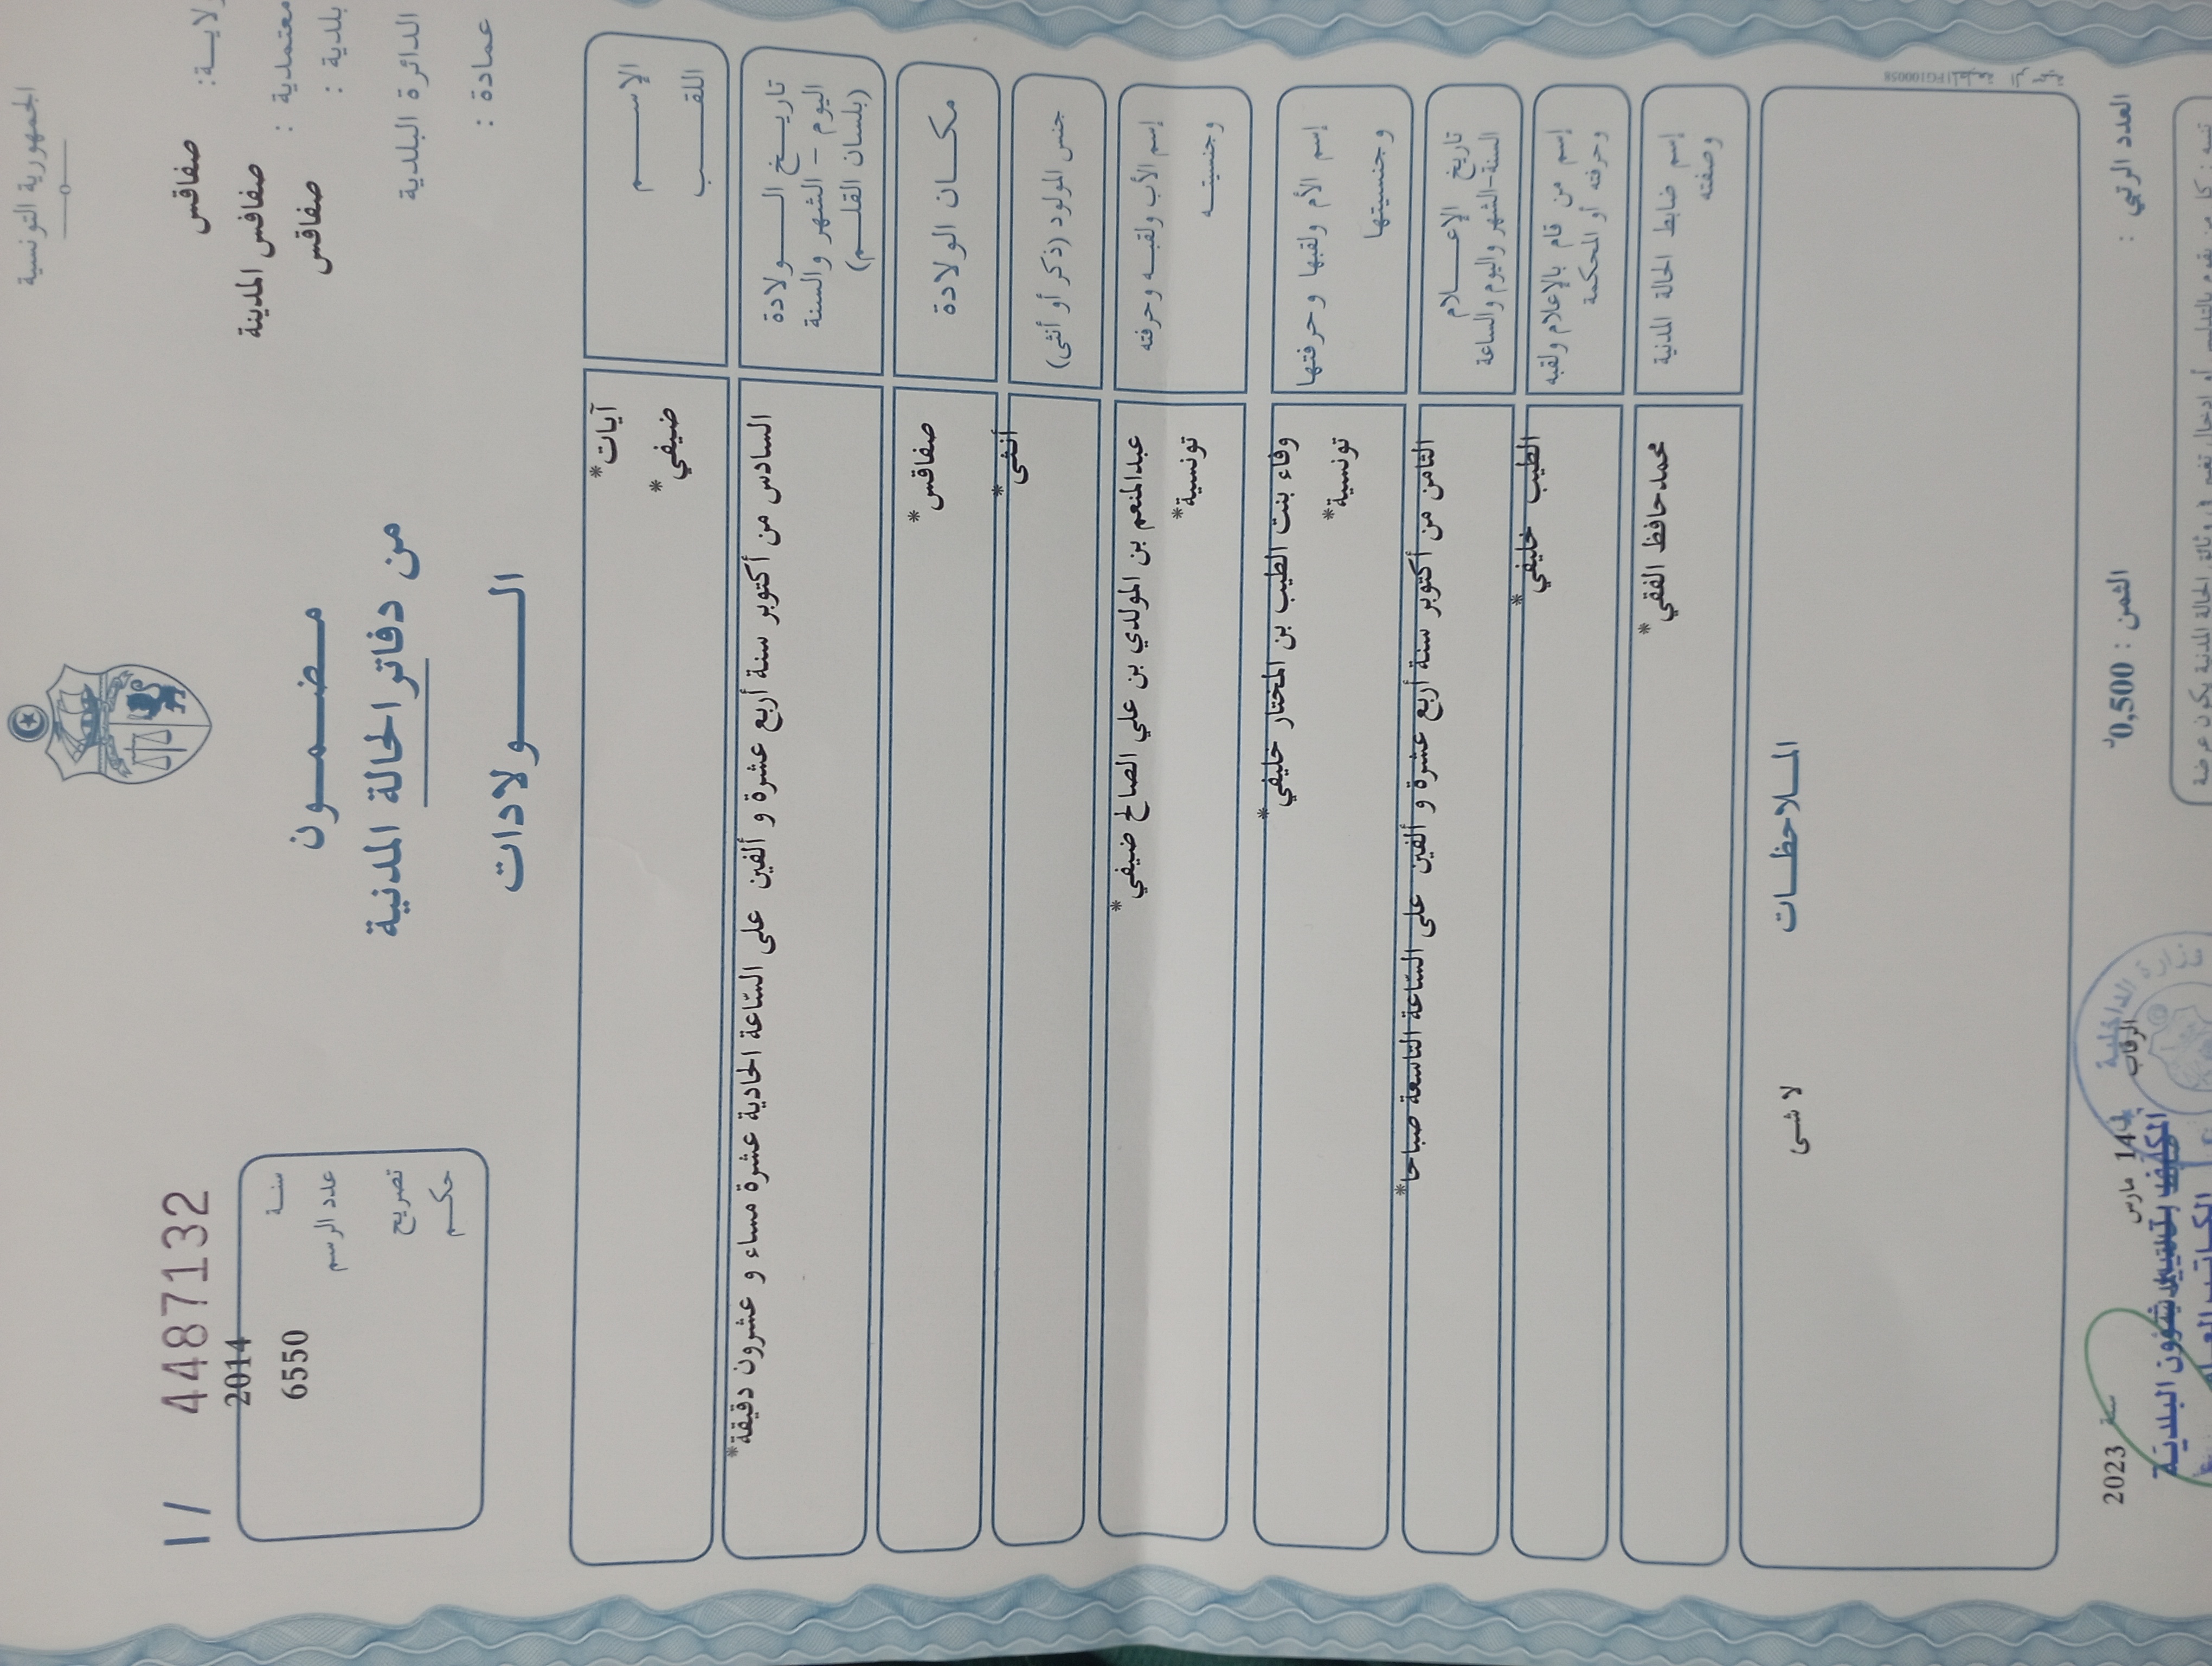 الجمهورية التونسية
ولايـــة: صفاقس
معتمدية : صفاقس المدينة
بلدية : صفاقس
الدائرة البلدية
عمادة :
مــضــمــون
من دفاتر الحالة المدنية
الــــولادات
11 4487132
سنــة 2014
عدد الرسم 6550
تصريح
حكــم
الإســــــم آيات*
اللقـــــب ضيفي*
تاريـــخ الــــولادة السادس من أكتوبر سنة أربع عشرة و ألفين على السّاعة الحادية عشرة مساء و عشرون دقيقة*
اليوم – الشهر والسنة
(بلسان القلــم)
مكـــان الولادة صفاقس*
جنس المولود (ذكر أو أنثى) أنثى*
إسم الأب ولقبـه وحرفته عبدالمنعم بن المولدي بن علي الصالح ضيفي*
وجنسيتــه تونسية*
إسم الأم ولقبها وحرفتها وفاء بنت الطيب بن المختار خليفي*
وجنسيتها تونسية*
تاريخ الإعـــــلام الثامن من أكتوبر سنة أربع عشرة و ألفين على السّاعة التاسعة صباحا*
السنة-الشهر واليوم والساعة
إسم من قام بالإعلام ولقبه الطيب خليفي*
وحرفته أو المحكمة
إسم ضابط الحالة المدنية محمدحافظ الفقي*
وصفته
المــلاحظــات
لا شى
العدد الرتبي :
الثمن : 0,500د
الرقاب في 14 مارس سنة 2023
وزارة الداخلية
المكلف بتسيير شؤون البلدية